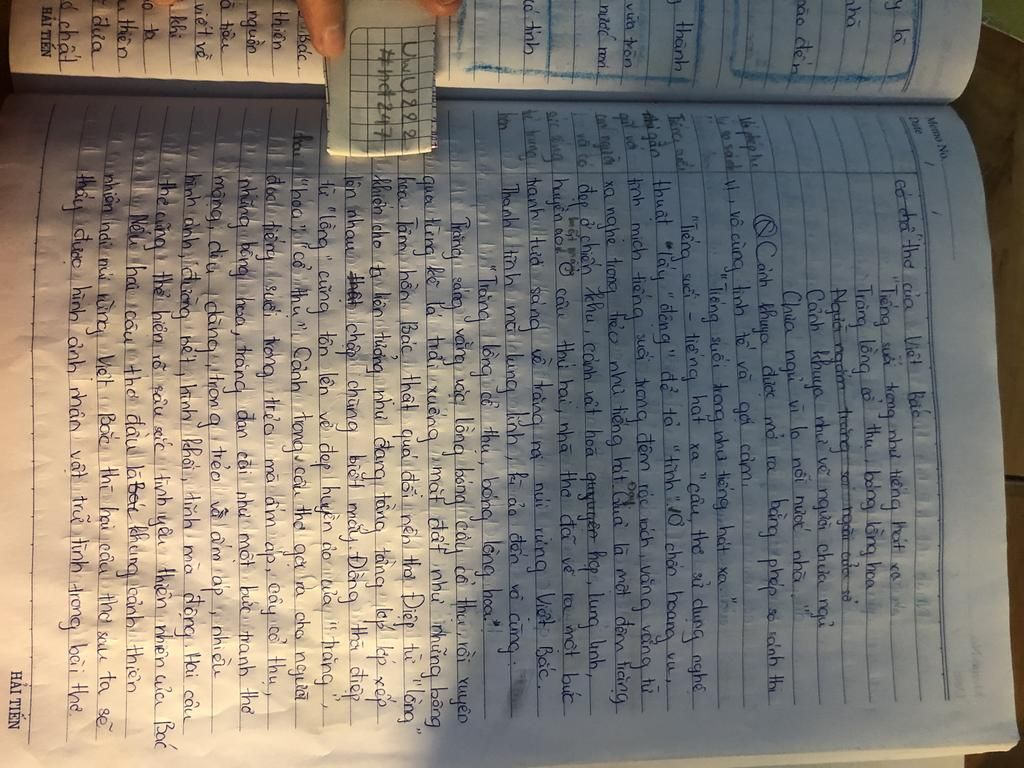 là
đến
nhà
thành
nước non
tình
bác.
thiên
nguồn
viết về
khi
thiên
đưa
chất
HẢI TIẾN
UhuU222
#hd247
Memo No.
Date / /
cơ chế thơ của Việt Bắc
"Tiếng suối trong như tiếng hát xa
Trăng lồng cổ thụ bóng lồng hoa
Cảnh khuya như vẽ người chưa ngủ
Chưa ngủ vì lo nỗi nước nhà."
Cảnh khuya được mở ra bằng phép so sánh thi
vị, vô cùng tinh tế và gợi cảm.
"Tiếng suối trong như tiếng hát xa"
"Tiếng suối - tiếng hát xa" câu thơ sử dụng nghệ
thuật lấy "động" để tả "tĩnh" ở chốn hoang vu,
tĩnh mịch tiếng suối trong đêm róc rách văng vẳng từ
xa nghe trong trẻo như tiếng hát. Đây là một đêm trăng
đẹp ở chiến khu, cảnh vật hòa hợp lung linh,
huyền ảo. câu thứ hai, nhà thơ đã vẽ ra một bức
tranh tươi sáng về trăng và núi rừng Việt Bắc.
Thanh tĩnh mà lung linh, kì ảo đến vô cùng.
"Trăng lồng cổ thụ, bóng lồng hoa"
Trăng sáng vằng vặc lồng bóng cây cổ thụ, rồi xuyên
qua từng kẽ lá trải xuống mặt đất như những bông
hoa. Tâm hồn Bác thật quá đỗi nên thơ. Điệp từ "lồng"
khiến cho ta liên tưởng như đang tầng tầng lớp lớp xếp
lên nhau chập chùng biết mấy. Đồng thời điệp
từ "lồng" cũng tôn lên vẻ đẹp huyền ảo của "trăng",
"hoa", "cổ thụ". Cảnh trong câu thơ gợi ra cho người
đọc tiếng suối trong trẻo mà ấm áp, cây cổ thụ,
những bông hoa, trăng đan cài như một bức tranh thơ
mộng, dịu dàng, trong trẻo và ấm áp, nhiều
hình ảnh, đường nét, hình khối, tĩnh mà động. Hai câu
thơ cũng thể hiện rõ sâu sắc tình yêu thiên nhiên của Bác
Nếu hai câu thơ đầu là khung cảnh thiên
nhiên núi rừng Việt Bắc thì hai câu thơ sau ta sẽ
thấy được hình ảnh nhân vật trữ tình trong bài thơ.
HẢI TIẾN